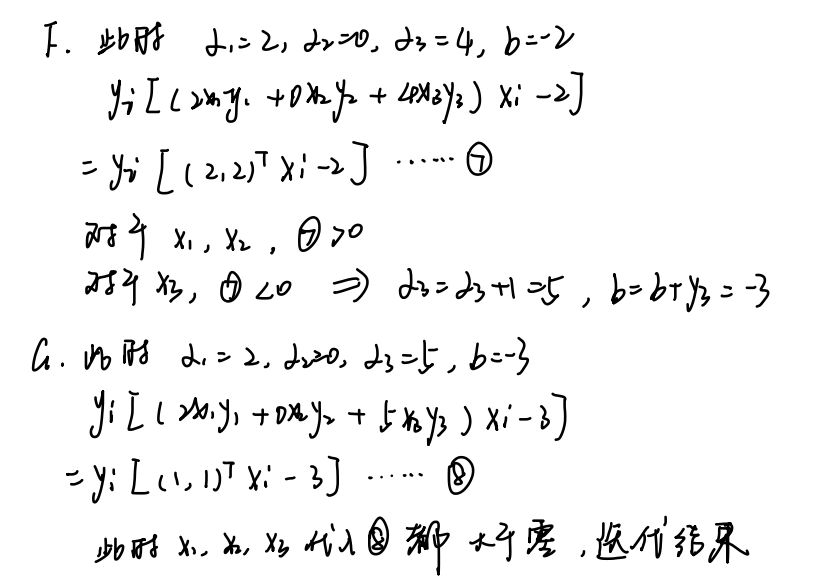 F. 此时 α₁=2, α₂=0, α₃=4, b=-2
yᵢ[(2x₁y₁+0x₂y₂+4x₃y₃)xᵢ-2]
=yᵢ[(2,2)ᵀxᵢ-2] ······⑦
对于x₁,x₂,⑦>0
对于x₃,⑦<0 ⇒ α₃=α₃+1=5, b=b+y₃=-3
G. 此时 α₁=2, α₂=0, α₃=5, b=-3
yᵢ[(2x₁y₁+0x₂y₂+5x₃y₃)xᵢ-3]
=yᵢ[(1,1)ᵀxᵢ-3] ······⑧
此时x₁,x₂,x₃代入⑧都大于零,迭代结果